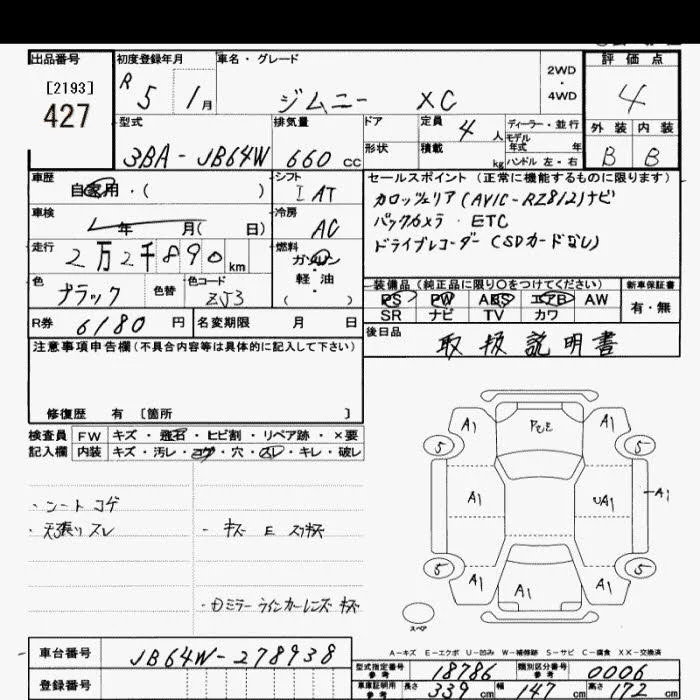 出品番号 初度登録年月 車名・グレード 評価点
[2193]
427
R 5 1月 ジムニー XC 2WD・4WD 4
型式 排気量 ドア 定員 4人 ディーラー・並行 外装 内装
3BA-JB64W 660cc 形状 積載 kg モデル年式 年 ハンドル 左・右 B B
車歴 自家用・( ) シフト IAT セールスポイント (正常に機能するものに限ります)
カロッツェリア(AVIC-RZ812)ナビ
車検 年 月( 日) 冷房 AC バックカメラ・ETC
走行 2万2千890km 燃料 ガソリン・軽・油( ) ドライブレコーダー(SDカードなし)
色 ブラック 色替 色コード ZJ3 装備品(純正品に限り〇をつけてください) 新車保証書
PS PW ABS エアB AW 有・無
SR ナビ TV カワ
R券 6180円 名変期限 月 日 後日品 取扱説明書
注意事項申告欄(不具合内容等は具体的に記入して下さい)
修復歴 有 [箇所 ]
検査員 FW キズ・飛石・ヒビ割・リペア跡・×要
記入欄 内装 キズ・汚レ・コゲ・穴・スレ・キレ・破レ
・シートコゲ
・天張りスレ
・キズ E スリキズ
ミラーウインカーレンズキズ
A1 A1
5 5
A1 UA1 A1
5 5
A1 A1 A1
スペア
A-キズ E-エクボ U-凹み W-補修跡 S-サビ C-腐食 XX-交換済
車台番号 JB64W-278938
型式指定番号 参考 18786 類別区分番号 参考 0006
登録番号 車庫証明用 参考 長さ 339cm 幅 147cm 高さ 172cm